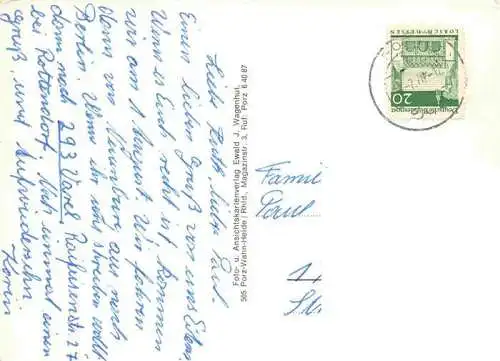 Liebe Ruth, lieber Paul
Einen lieben Gruß von uns Eltern
Wenn es Euch recht ist kommen
wir am 1 August. Wir fahren
dann von Nürnberg aus nach
Berlin. Wenn ihr uns schreiben wollt
dann nach 293 Varel
bei Rottendorf. Noch einmal einen
Gruß und Aufwiedersehn
Karin
Foto- u. Ansichtskartenverlag Ewald J. Wagenhut,
505 Porz-Wahn-Heide/Rhld., Magazinstr. 3, Ruf: Porz 6 40 87
LORSCH/HESSEN
Deutsche Bundespost
20
Famil
Paul